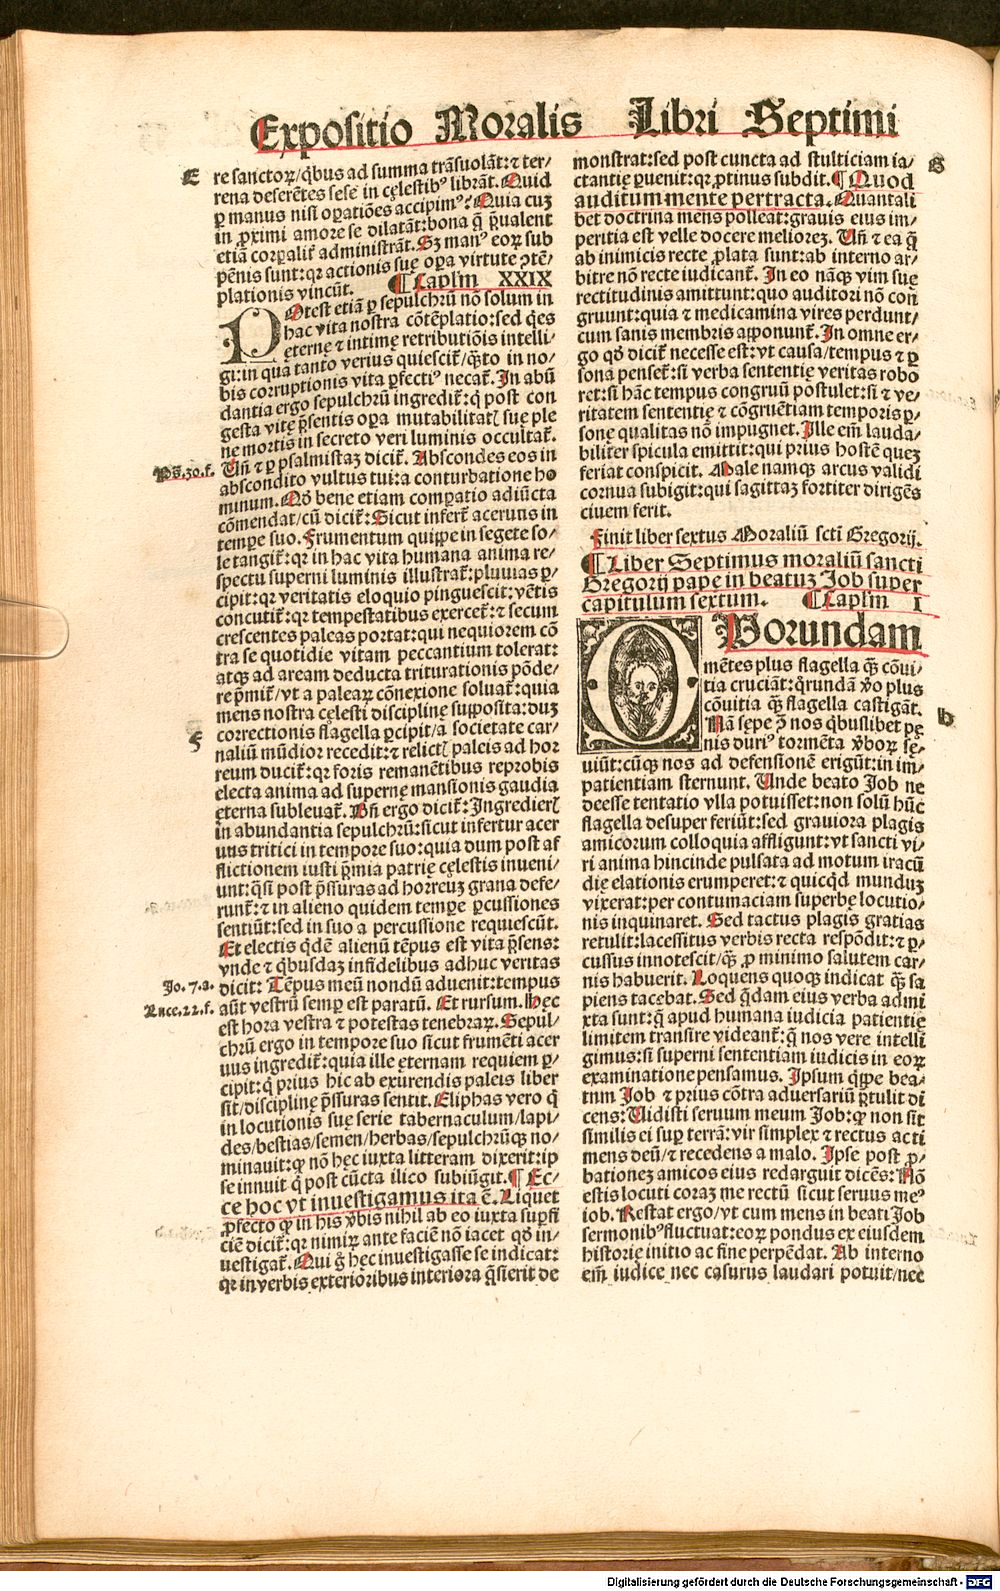 Expositio Moralis Libri Septimi
E
re sanctoꝝ/q̃bus ad summa trãsuolãt:⁊ ter/
rena deserẽtes sese in cęlestibꝰ librãt. Quid
ꝑ manus nisi oꝑatiões accipimꝰ? Quia cuꝫ
in ꝓximi amore se dilatãt:bona q̃ p̃ualent
etiã corꝑalit̃ administrãt. Sꝫ manꝰ eoꝝ sub
pẽnis sunt:qꝛ actionis suę oꝑa virtute ꝯtẽ/
plationis vincũt. ¶ Caplm XXIX
POtest etiã ꝑ sepulchrũ nõ solum in
hac vita nostra cõtẽplatio:sed q̃es
ęternę ⁊ intimę retributiõis intelli/
gi:in qua tanto verius quiescit̃/q̃to in no/
bis corruptionis vita ꝑfectiꝰ necat̃. In abũ
dantia ergo sepulchrũ ingredit̃:q̃ post con
gesta vitę p̃sentis oꝑa mutabilitatꝭ suę ple
ne mortis in secreto veri luminis occultat̃.
Ps.30.f.
Uñ ⁊ ꝑ psalmistaꝫ dicit̃. Abscondes eos in
abscondito vultus tui:a conturbatione ho
minum. Qõ bene etiam comꝑatio adiũcta
cõmendat/cũ dicit̃:Sicut infert̃ aceruus in
temꝑe suo. Frumentum quippe in segete so/
le tangit̃:qꝛ in hac vita humana anima re/
spectu superni luminis illustrat̃:pluuias ꝑ/
cipit:qꝛ veritatis eloquio pinguescit:vẽtis
concutit̃:qꝛ tempestatibus exercet̃:⁊ secum
crescentes paleas portat:qui nequiorem cõ
tra se quotidie vitam peccantium tolerat:
atqꝫ ad aream deducta triturationis põde/
re p̃mit̃/vt a paleaꝝ cõnexione soluat̃:quia
mens nostra cęlesti disciplinę supposita:duꝫ
correctionis flagella ꝑcipit/a societate car/
F
naliũ mũdior recedit:⁊ relictꝭ paleis ad hor
reum ducit̃:qꝛ foris remanẽtibus reprobis
electa anima ad supernę mansionis gaudia
ęterna subleuat̃. Bñ ergo dicit̃:Ingredierꝭ
in abundantia sepulchrũ:sicut infertur acer
uus tritici in tempore suo:quia dum post af
flictionem iusti p̃mia patrię cęlestis inueni/
unt:q̃si post p̃ssuras ad horreuꝫ grana defe/
runt̃:⁊ in alieno quidem temꝑe ꝑcussiones
sentiũt:sed in suo a percussione requiescũt.
Et electis q̃dẽ alienũ tẽpus est vita p̃sens:
vnde ⁊ q̃busdaꝫ infidelibus adhuc veritas
Jo.7.a.
dicit: Tẽpus meũ nondũ aduenit:tempus
Luce.22.f.
aũt vestrũ semꝑ est paratũ. Et rursum. Hęc
est hora vestra ⁊ potestas tenebraꝝ. Sepul/
chrũ ergo in tempore suo sicut frumẽti acer
uus ingredit̃:quia ille ęternam requiem ꝑ/
cipit:q̃ prius hic ab exurendis paleis liber
sit/disciplinę p̃ssuras sentit. Eliphas vero q̃
in locutionis suę serie tabernaculum/lapi/
des/bestias/semen/herbas/sepulchrũqꝫ no/
minauit:ꝙ nõ hęc iuxta litteram dixerit:ip
se innuit q̃ post cũcta ilico subiũgit. ¶ Ec/
ce hoc vt inuestigamus ita ẽ. Liquet
ꝓfecto ꝙ in his v̾bis nihil ab eo iuxta suꝑfi
ciẽ dicit̃:qꝛ nimiꝝ ante faciẽ nõ iacet qõ in/
uestigat̃. Qui g̊ hęc inuestigasse se indicat:
qꝛ in verbis exterioribus interiora q̃sierit de
monstrat:sed post cuncta ad stulticiam ia/
G
ctantię ꝑuenit:qꝛ ꝓtinus subdit. ¶ Quod
auditum mente pertracta. Quantali
bet doctrina mens polleat:grauis eius im/
peritia est velle docere melioreꝫ. Uñ ⁊ ea q̃
ab inimicis recte ꝓlata sunt:ab interno ar/
bitro nõ recte iudicant̃. In eo nãqꝫ vim suę
rectitudinis amittunt:quo auditori nõ con
gruunt:quia ⁊ medicamina vires perdunt/
cum sanis membris apponunt̃. In omne er/
go qõ dicit̃ necesse est:vt causa/tempus ⁊ ꝑ
sona penset̃:si verba sententię veritas robo
ret:si hãc tempus congruũ postulet:si ⁊ ve/
ritatem sententię ⁊ cõgruẽtiam temporis ꝑ/
sonę qualitas nõ impugnet. Ille em̃ lauda/
biliter spicula emittit:qui prius hostẽ queꝫ
feriat conspicit. Male namqꝫ arcus validi
cornua subigit:qui sagittaꝫ fortiter dirigẽs
ciuem ferit.
Finit liber sextus Moraliũ scti Gregorij.
¶ Liber Septimus moraliũ sancti
Gregorij pape in beatuꝫ Job super
capitulum sextum. ¶ Caplm I
QUorundam
mẽtes plus flagella q̃ꝫ cõui/
tia cruciãt:q̃rundã v̾o plus
cõuitia q̃ꝫ flagella castigãt.
H
Nã sępe ꝯ̃ nos q̃buslibet pę
nis duriꝰ tormẽta v̾boꝝ sę/
uiũt:cũqꝫ nos ad defensionẽ erigũt:in im/
patientiam sternunt. Unde beato Job ne
deesse tentatio vlla potuisset:non solũ hũc
flagella desuper feriũt:sed grauiora plagis
amicorum colloquia affligunt:vt sancti vi/
ri anima hincinde pulsata ad motum iracũ
dię elationis erumperet:⁊ quicq̃d munduꝫ
vixerat:per contumaciam superbę locutio/
nis inquinaret. Sed tactus plagis gratias
retulit:lacessitus verbis recta respõdit:⁊ ꝑ/
cussus innotescit/q̃ꝫ ꝓ minimo salutem car/
nis habuerit. Loquens quoqꝫ indicat q̃ꝫ sa
piens tacebat. Sed q̃dam eius verba admi
xta sunt:q̃ apud humana iudicia patientię
limitem transire videant̃:q̃ nos vere intelli
gimus:si superni sententiam iudicis in eoꝝ
examinatione pensamus. Ipsum q̃ppe bea/
tum Job ⁊ prius cõtra aduersariũ p̃tulit di
cens:Uidisti seruum meum Job:ꝙ non sit
similis ei suꝑ terrã:vir simplex ⁊ rectus ac ti
mens deũ/⁊ recedens a malo. Ipse post ꝓ/
bationeꝫ amicos eius redarguit dicẽs:Nõ
estis locuti coraꝫ me rectũ sicut seruus meꝰ
iob. Restat ergo/vt cum mens in beati Job
sermonibꝰ fluctuat:eoꝝ pondus ex eiusdem
historię initio ac fine perpẽdat. Ab interno
em̃ iudice nec casurus laudari potuit/nec